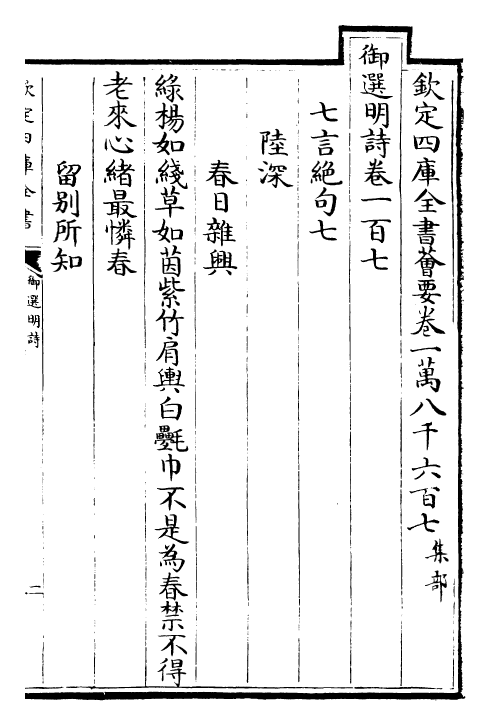 欽定四庫全書薈要卷一萬八千六百七 集部
御選明詩卷一百七
七言絶句七
陸深
春日雜興
綠楊如綫草如茵紫竹肩輿白㲲巾不是為春禁不得
老來心緒最憐春
留别所知
欽定四庫全書
御選明詩